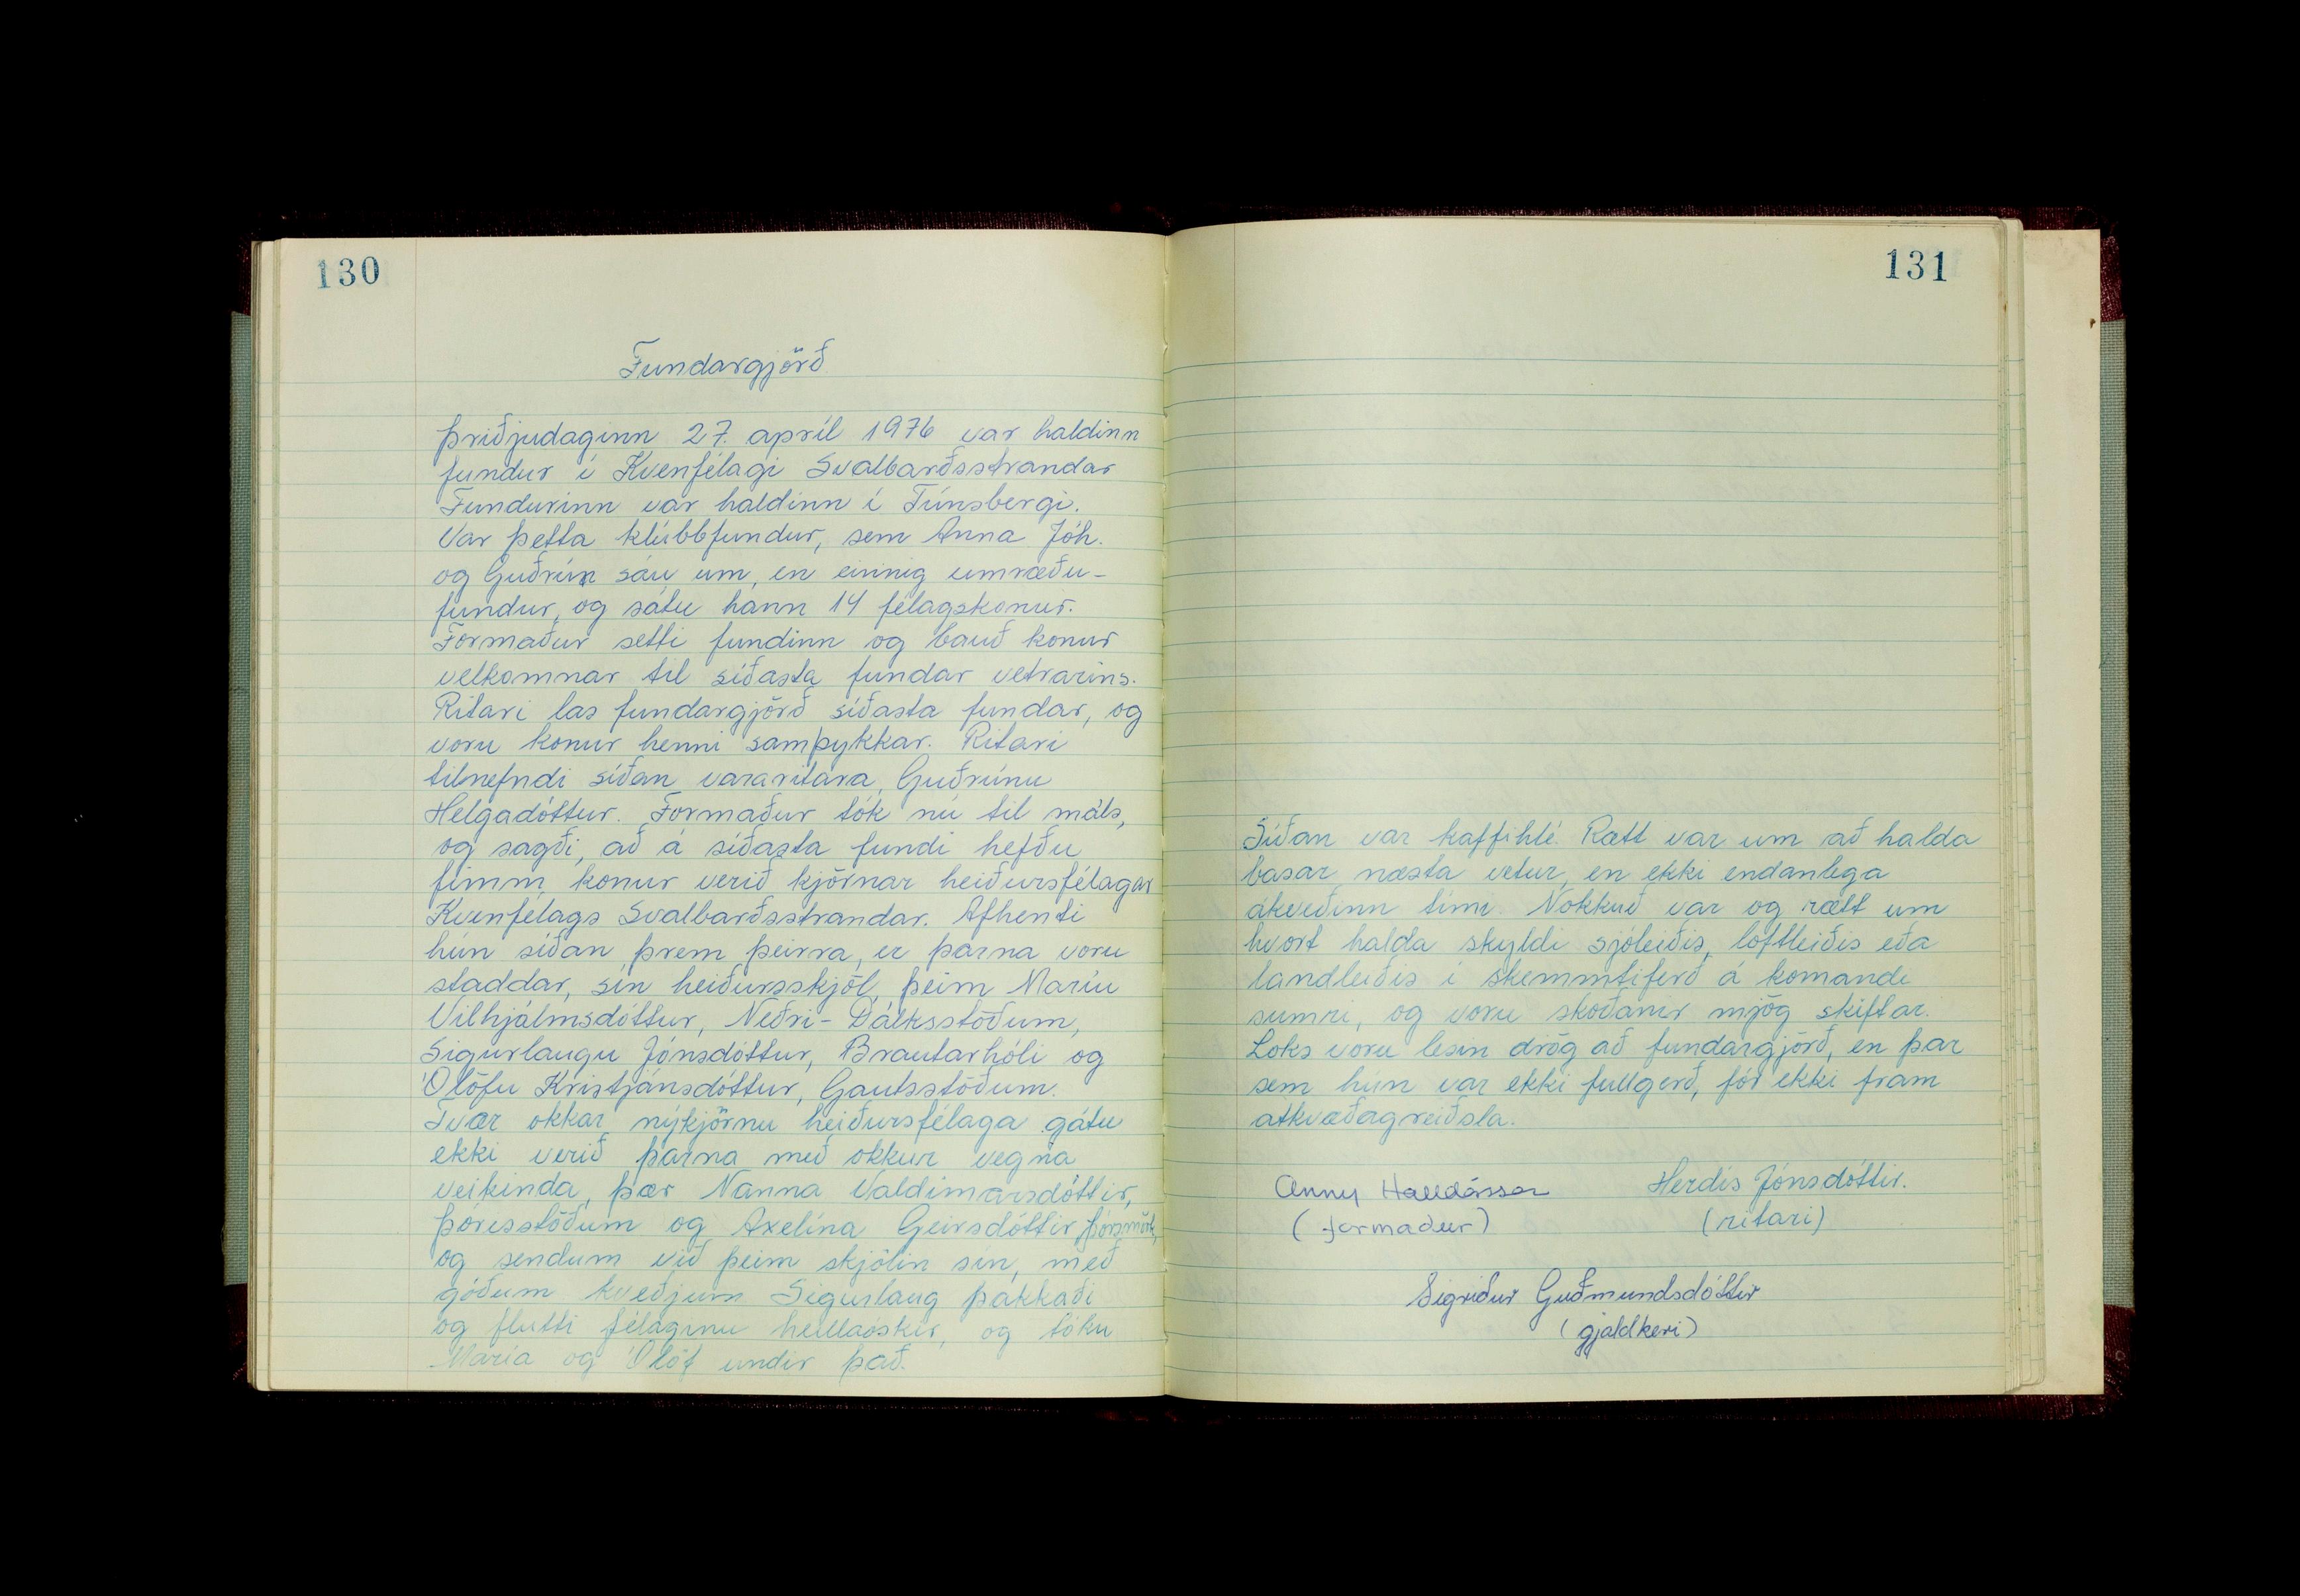 130
Fundargjörð
Þriðjudaginn 27. apríl 1976 var haldinn
fundur í Kvenfélagi Svalbarðsstrandar
Fundurinn var haldinn í Túnsbergi.
Var þetta klúbbfundur, sem Anna Jóh.
og Guðrún sáu um, en einnig umræðu-
fundur, og sátu hann 14 félagskonur.
Formaður setti fundinn og bauð konur
velkomnar til síðasta fundar vetrarins.
Ritari las fundargjörð síðasta fundar, og
voru konur henni samþykkar. Ritari
tilnefndi síðan vararitara, Guðrúnu
Helgadóttur. Formaður tók nú til máls,
og sagði, að á síðasta fundi hefðu
fimm konur verið kjörnar heiðursfélagar
Kvenfélags Svalbarðsstrandar. Afhenti
hún síðan þrem þeirra, er þarna voru
staddar, sín heiðursskjöl, þeim Maríu
Vilhjálmsdóttur, Neðri-Dálksstöðum,
Sigurlaugu Jónsdóttur, Brautarhóli og
Ólöfu Kristjánsdóttur, Gautsstöðum.
Tvær okkar nýkjörnu heiðursfélaga gátu
ekki verið þarna með okkur vegna
veikinda, þær Nanna Valdimarsdóttir,
Þórisstöðum og Axelína Geirsdóttir Þórsmörk,
og sendum við þeim skjölin sín, með
góðum kveðjum. Sigurlaug þakkaði
og flutti félaginu heillaóskir, og tóku
María og Ólöf undir það.
131
Síðan var kaffihlé. Rætt var um að halda
basar næsta vetur, en ekki endanlega
ákveðinn tími. Nokkuð var og rætt um
hvort halda skyldi sjóleiðis, loftleiðis eða
landleiðis í skemmtiferð á komandi
sumri, og voru skoðanir mjög skiftar.
Loks voru lesin drög að fundargjörð, en þar
sem hún var ekki fullgerð, fór ekki fram
atkvæðagreiðsla.
Anny Halldórsson Herdís Jónsdóttir.
(formaður) (ritari)
Sigríður Guðmundsdóttir
(gjaldkeri)